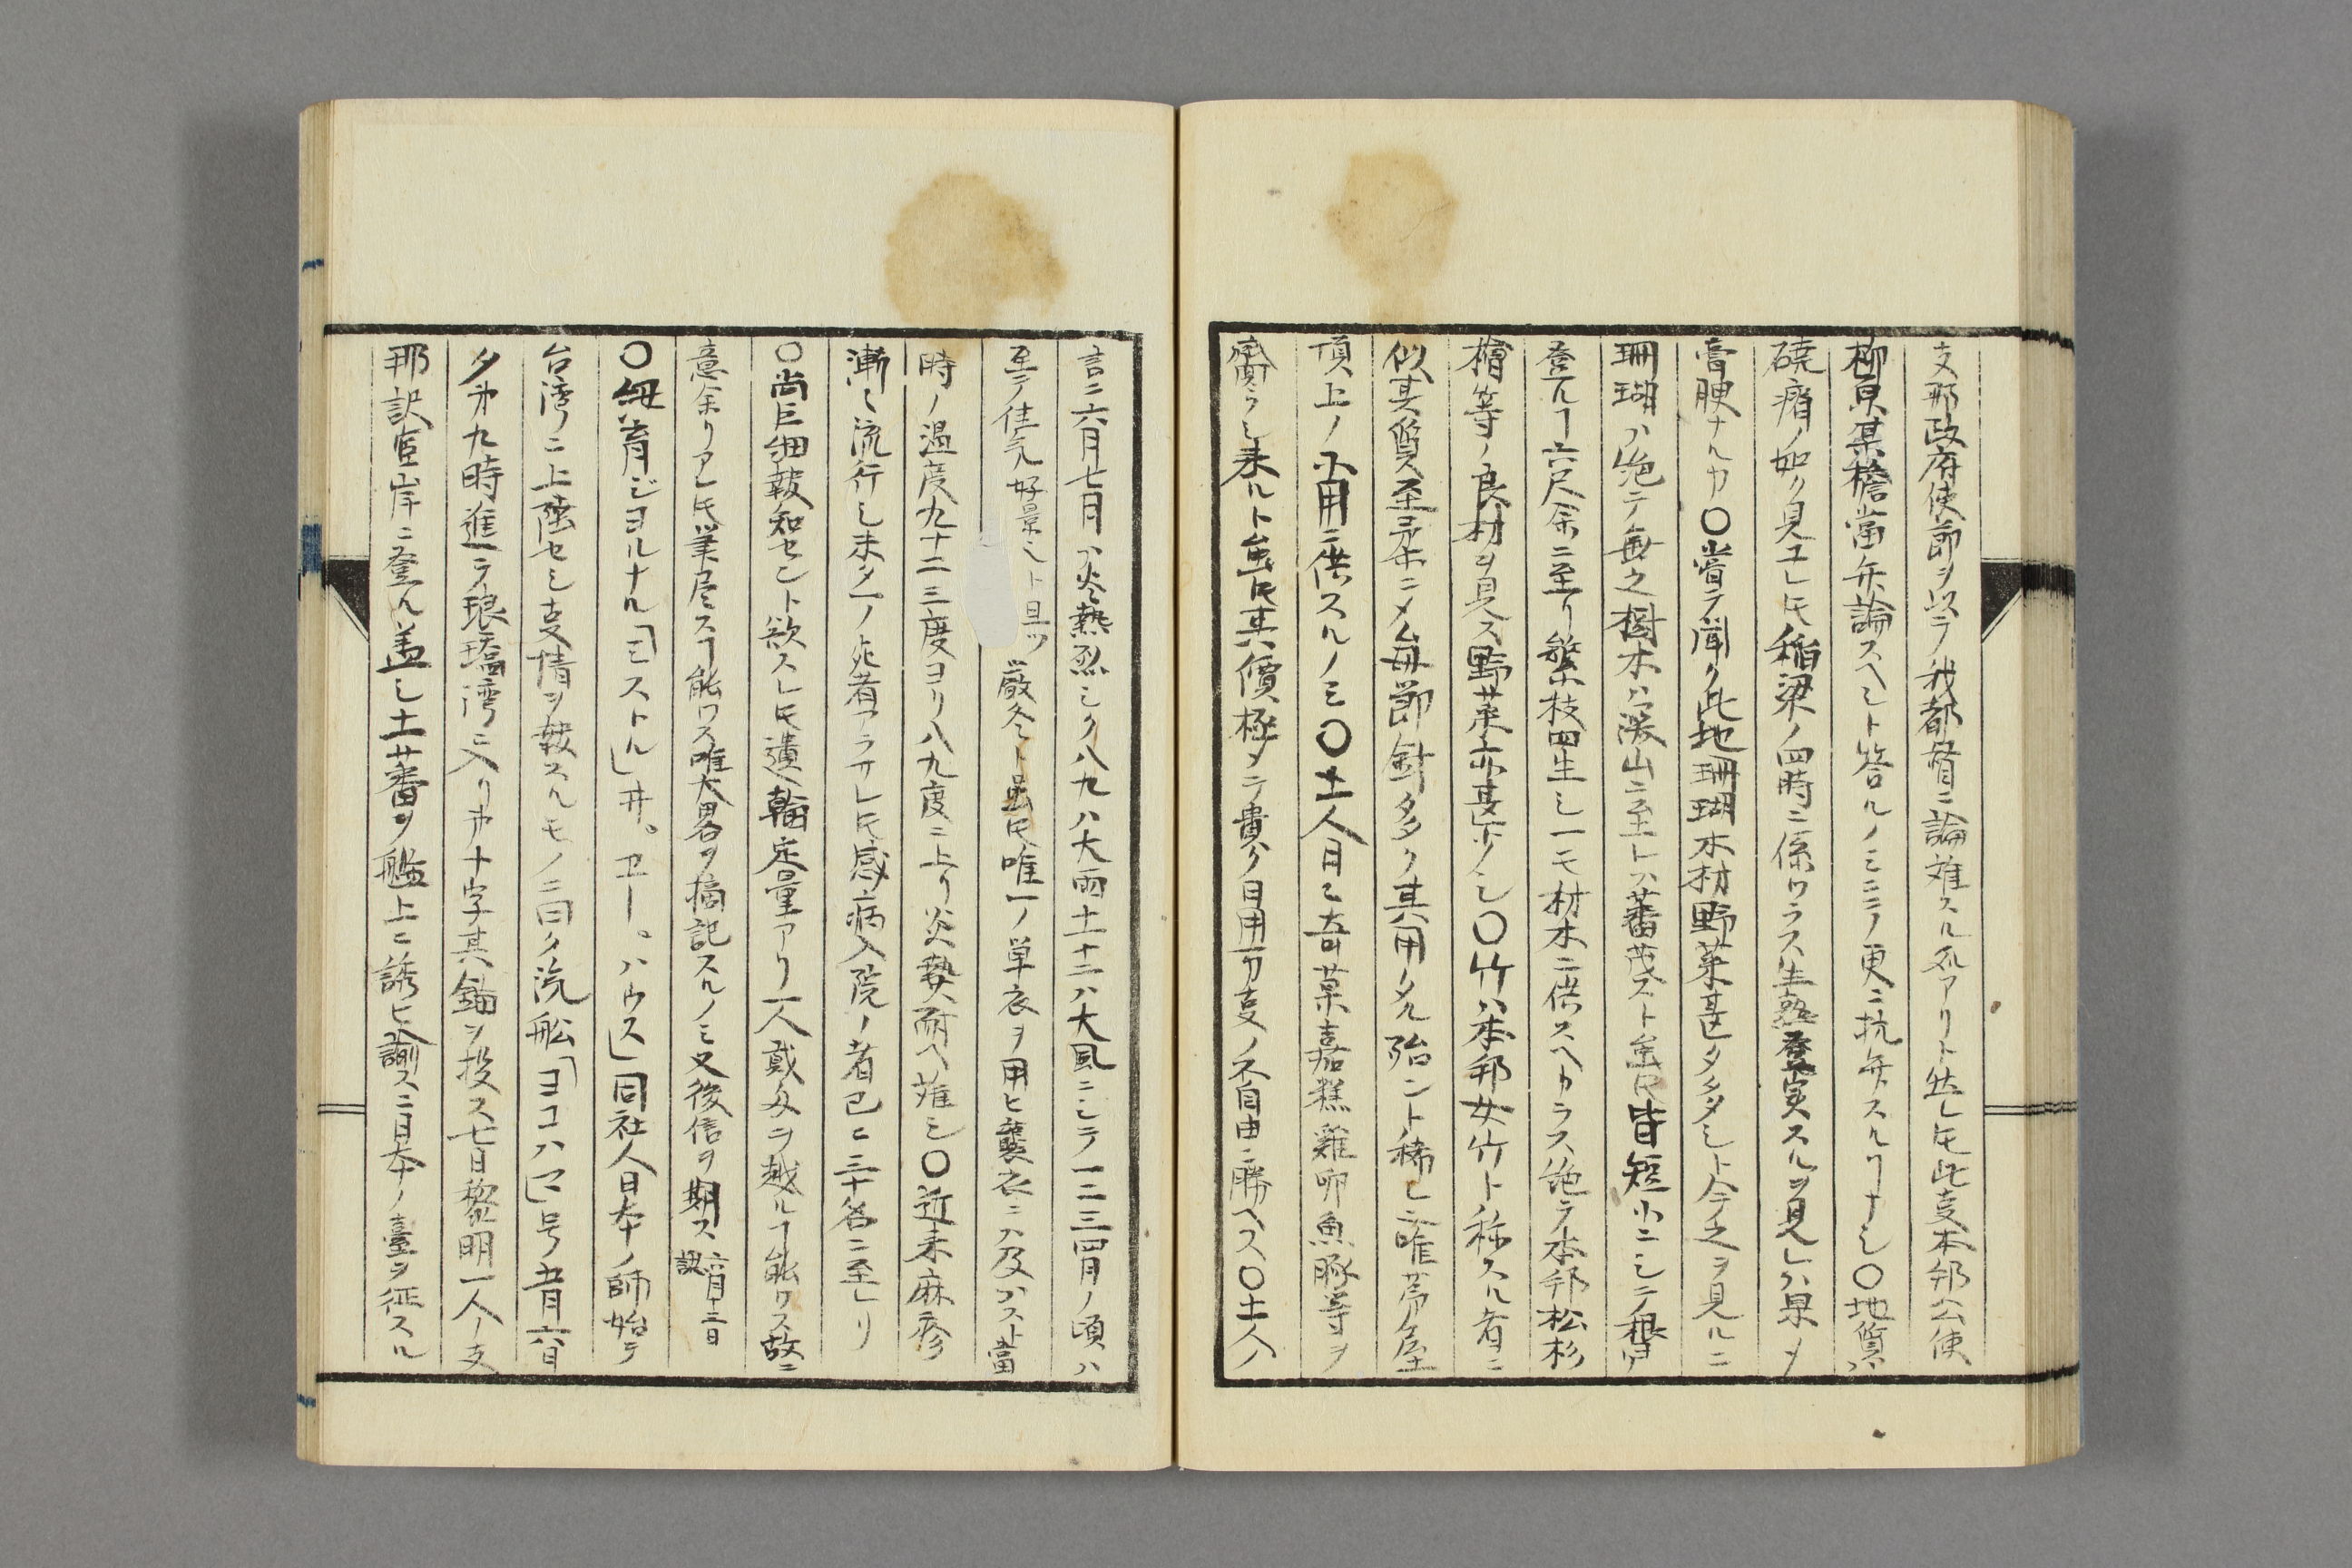 支那政府使節ヲ以テ我都督ニ論難スル処アリト然レ𪜈此支本邦公使
柳原某擔當弁論スヘシト答ルノミニテ更ニ抗弁スルヿナシ〇地質ハ
磽瘠ノ如ク見エレ𪜈稲梁ノ四時ニ係ワラス生熟登実スルヲ見レハ果メ
膏腴ナルカ〇嘗テ聞ク此地珊瑚木材野菜甚タ多シト今之ヲ見ルニ
珊瑚ハ絶テ無之樹木ハ深山ニ至レハ蕃茂スト虽𪜈皆短小ニシテ根ヨリ
登ルヿ六尺余ニ至リ繁枝四生シ一モ材木ニ供スヘカラス絶テ本邦松杉
檜等ノ良材ヲ見ス野菜亦甚少シ〇竹ハ本邦女竹ト称スル者ニ
似其質至柔ニメ毎節針多ク其用タル殆ント稀レ唯茅屋
頂上ノ用ニ供スルノミ〇土人日々奇菓嘉糕雞卵魚豚等ヲ
齎ラシ来ルト虽𪜈其價極メテ貴ク日用万支ノ不自由ニ勝ヘス〇土人ノ
言ニ六月七月ハ炎熱烈シク八九ハ大雨十一十二ハ大風ニシテ一二三四月ノ頃ハ
至テ佳気好景シト且ツ 厳冬ト虽𪜈唯一ノ単衣ヲ用ヒ襲衣ニハ及ハスト當
時ノ温度九十二三度ヨリ八九度ニ上リ炎熱耐ヘ難シ〇近来麻疹
漸々流行シ未タ一ノ死者アラサレ𪜈感病入院ノ者已ニ三十名ニ至レリ
〇尚巨細報知セント欲スレ𪜈遺輸定量アリ一人貮匁ヲ越ルヿ能ワス故ニ
意余リアレ𪜈筆尽スヿ能ワス唯大畧ヲ摘記スルノミ又後信ヲ期ス 六月十三日認
〇紐育ジヨルナル「ミストル」井。エー。ハウス」同社人日本ノ師始テ
台湾ニ上陸セシ支情ヲ報スルモノニ曰ク汽舩「ヨコハマ」号五月六日
夕第九時進テ琅𤩝湾ニ入リ第十字其錨ヲ投ス七日黎明一人ノ支
那訳官岸ニ登ル盖シ土蕃ヲ艦上ニ誘ヒ諭スニ日本ノ臺ヲ征スル